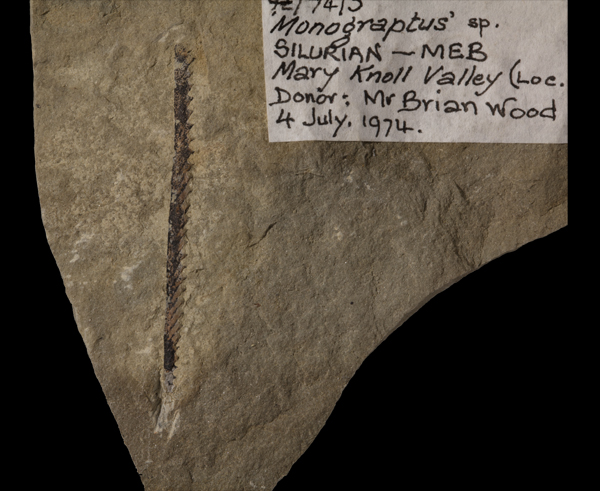 Monograptus' sp.
SILURIAN — MEB
Mary Knoll Valley (Loc.
Donor: Mr Brian Wood
4 July. 1974.